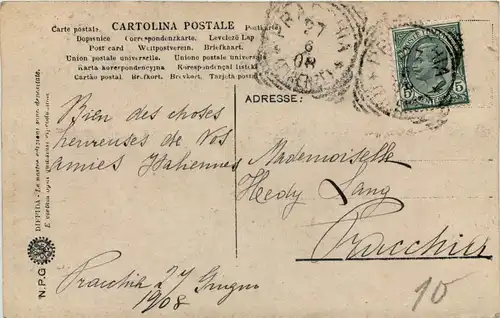 Carte postale. CARTOLINA POSTALE Postkarte
Dopisnice Correspondenzkarte. Levelező Lap
Post card Weltpostverein. Briefkaart.
Union postale universelle. Unione postale universale
Karta korespondencyjna Korespondenční lístek
Cartão postal. Brefkort. Brevkort. Tarjeta postal
PRACCHIA
27
6
08
5 5
ADRESSE:
Bien des choses
heureuses de Vos
amies Italiennes
Mademoiselle
Hedy Lang
Pracchia
Pracchia 27 Giugno
1908
10
DIFFIDA - Le nostre edizioni sono depositate.
N.P.G.